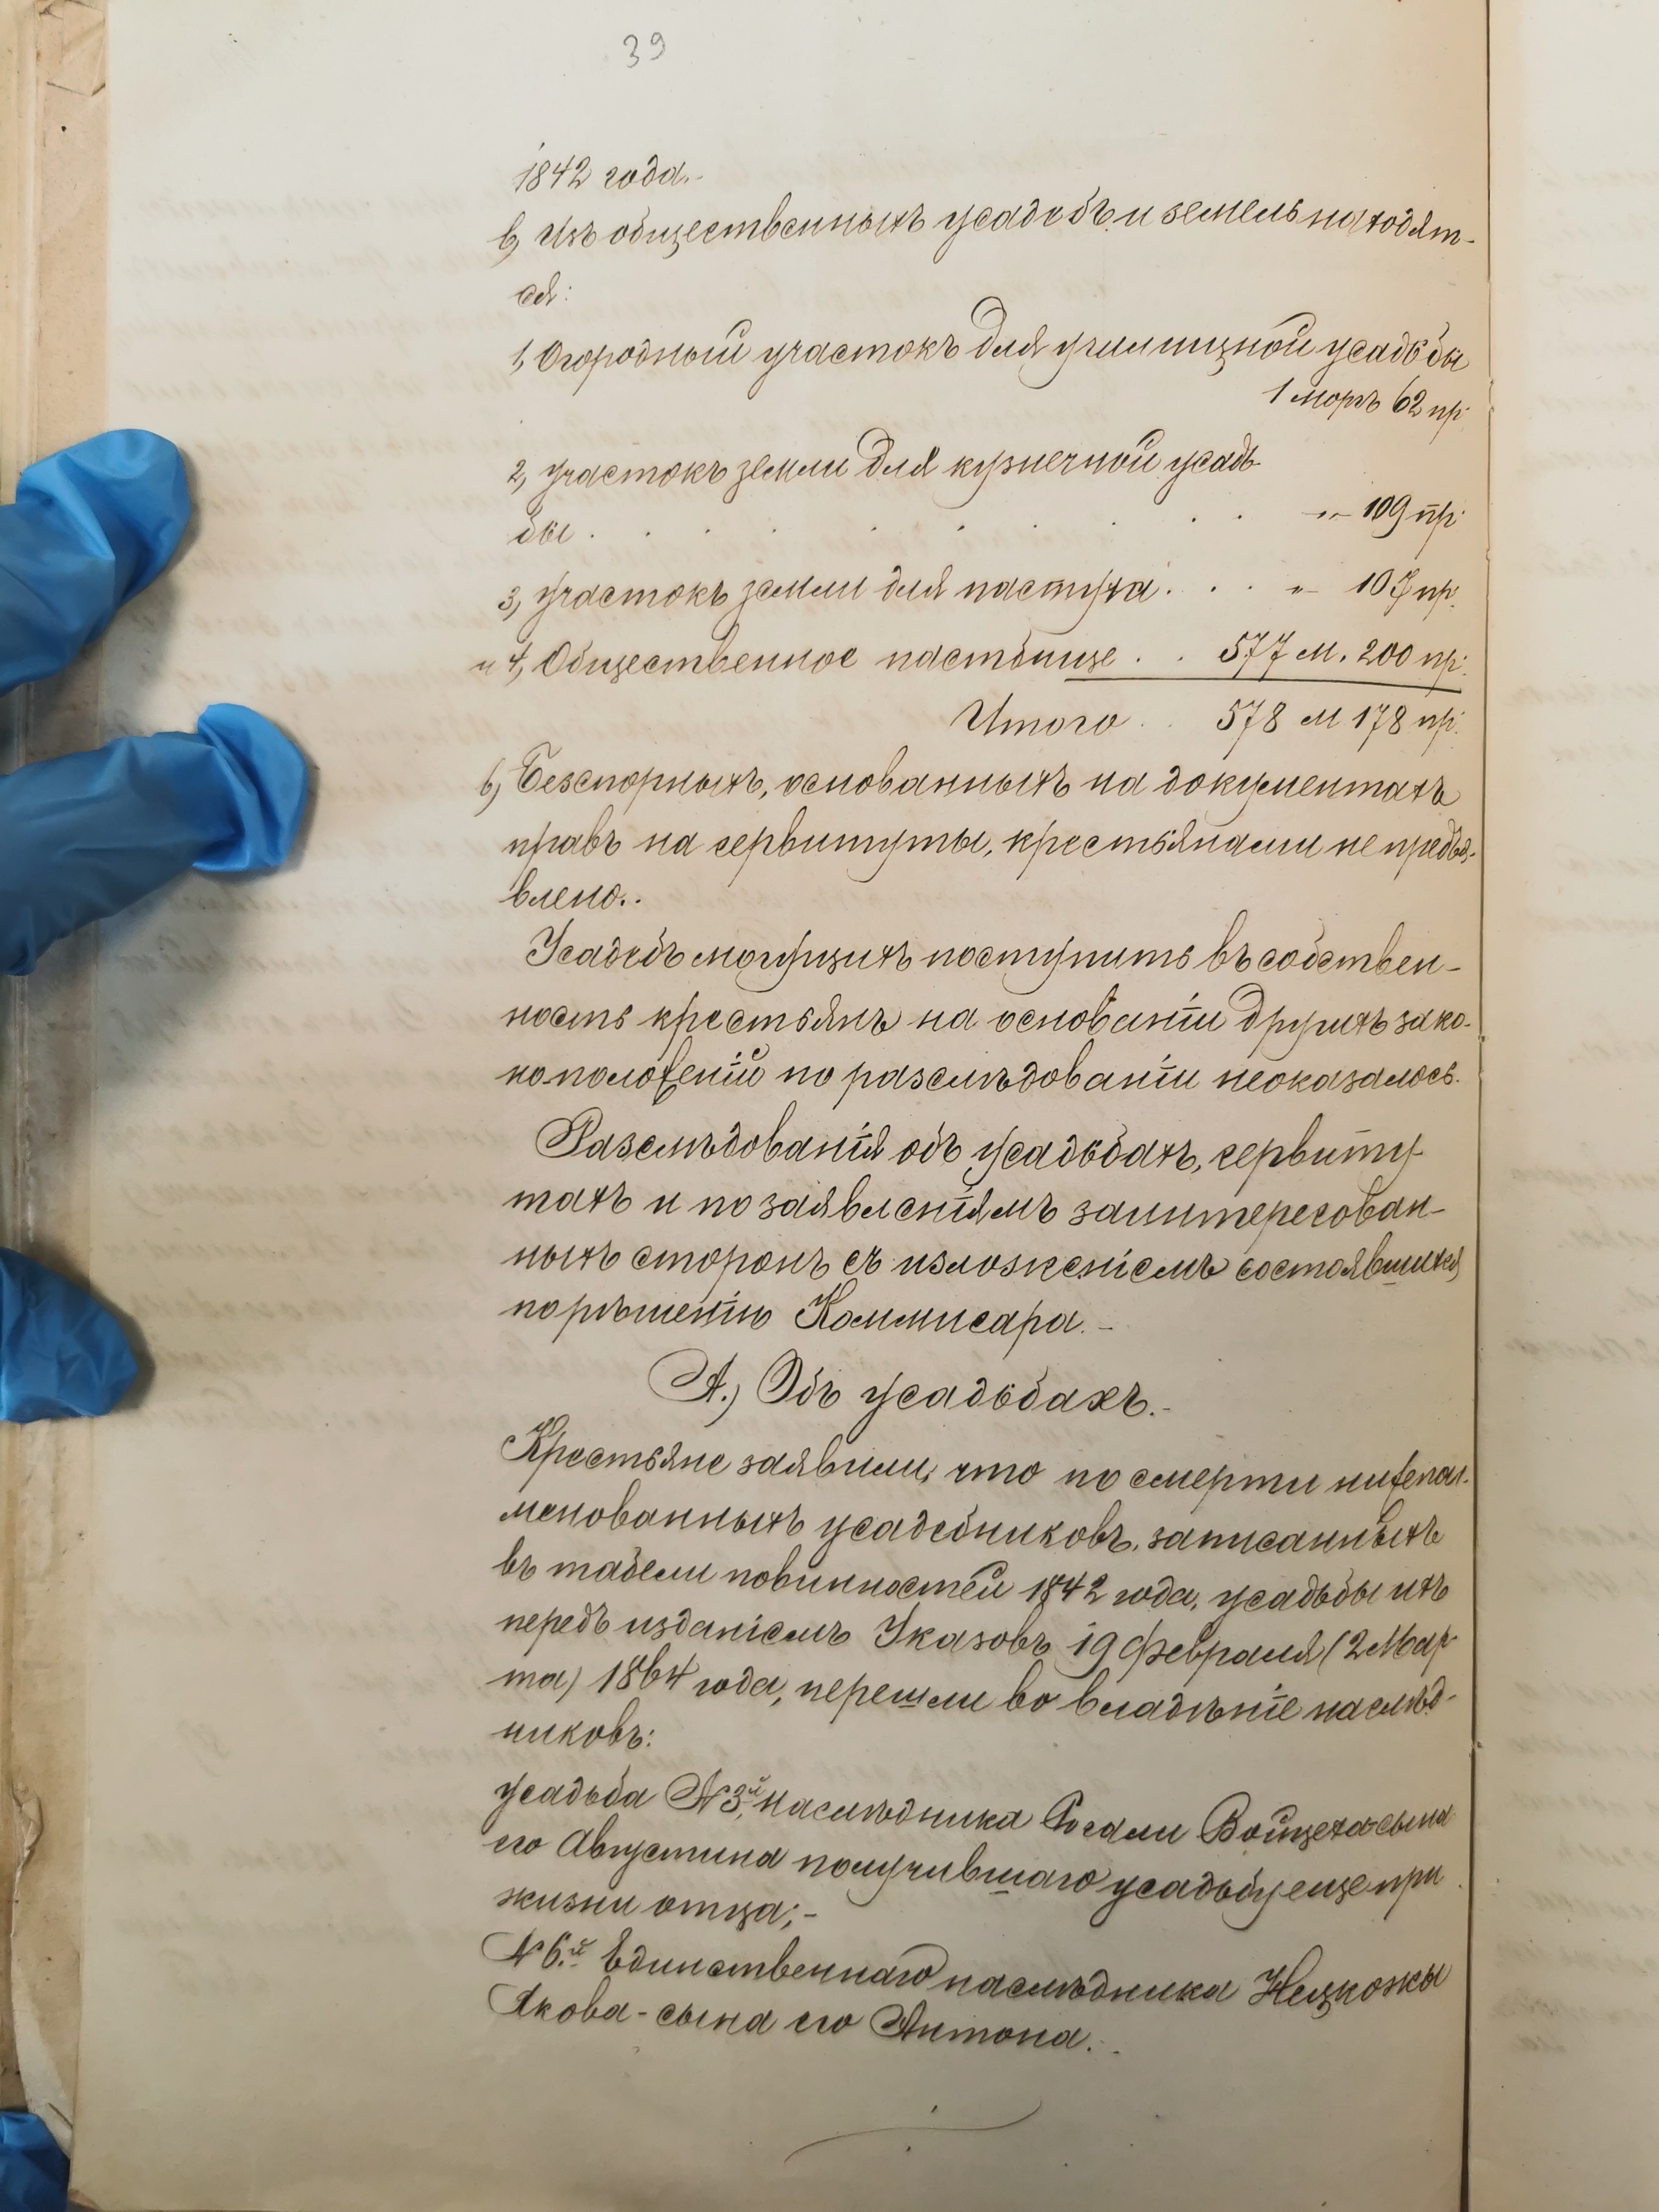 39
1842 года.-
б, Изъ общественныхъ усадебъ и земель находят-
ся:
1, Огородный участокъ для училищной усадьбы
1 моргъ 62 пр.
2, участокъ земли для кузнечной усадь-
бы . . . . . . . . . „ - 109 пр.
3, участокъ земли для пастуха. . . . „ - 107 пр.
и 4, Общественное пастбище . . 577 м. 200 пр.
Итого . . 578 м 178 пр.
в, Безспорныхъ, основанныхъ на документахъ
правъ на сервитуты, крестьянами не предъя-
влено..
Усадебъ могущихъ поступить въ собствен-
ность крестьянъ на основаніи другихъ зако-
коположеній по разслѣдованіи неоказалось.
Разслѣдованія объ усадьбахъ, сервиту-
тахъ и по заявленіямъ заинтересован-
ныхъ сторонъ съ изложеніемъ состоявшихся
по рѣшенію Коммисара.-
А.) Объ усадьбахъ.-
Крестьяне заявили, что по смерти нижепои-
менованныхъ усадебниковъ, записанныхъ
въ табели повинностей 1842 года, усадьбы ихъ
передъ изданіемъ Указовъ 19 февраля (2 Мар-
та) 1864 года, перешли во владѣніе наслѣд-
никовъ:
усадьба N 3,й наслѣдника Войцеха-сына
его Августина получившаго усадьбу еще при
жизни отца;-
N 6.й Единственнаго наслѣдника
Якова-сына его Антона..